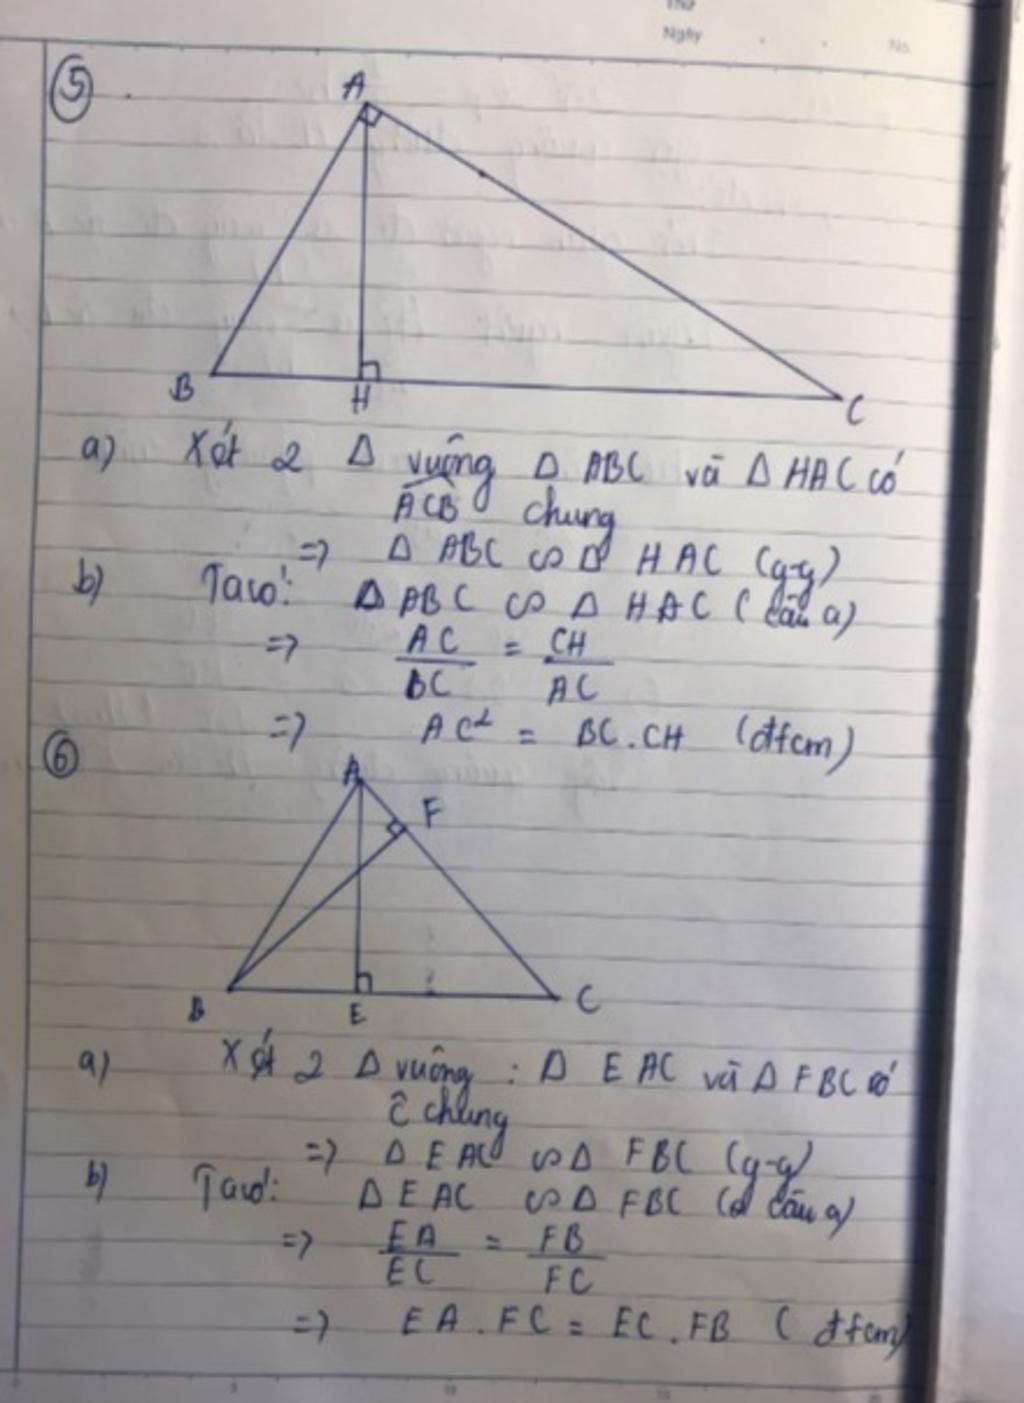 Thứ
Ngày . . No.
5
A
B H C
a) Xét 2 Δ vuông Δ ABC và Δ HAC có
ACB chung
=> Δ ABC ∽ Δ HAC (g-g)
b) Ta có: Δ ABC ∽ Δ HAC (câu a)
=> AC/BC = CH/AC
=> AC² = BC.CH (đfcm)
6
A
F
B E C
a) Xét 2 Δ vuông : Δ EAC và Δ FBC có
Ĉ chung
=> Δ EAC ∽ Δ FBC (g-g)
b) Ta có: Δ EAC ∽ Δ FBC (câu a)
=> EA/EC = FB/FC
=> EA.FC = EC.FB (đfcm)
5 10 15 20